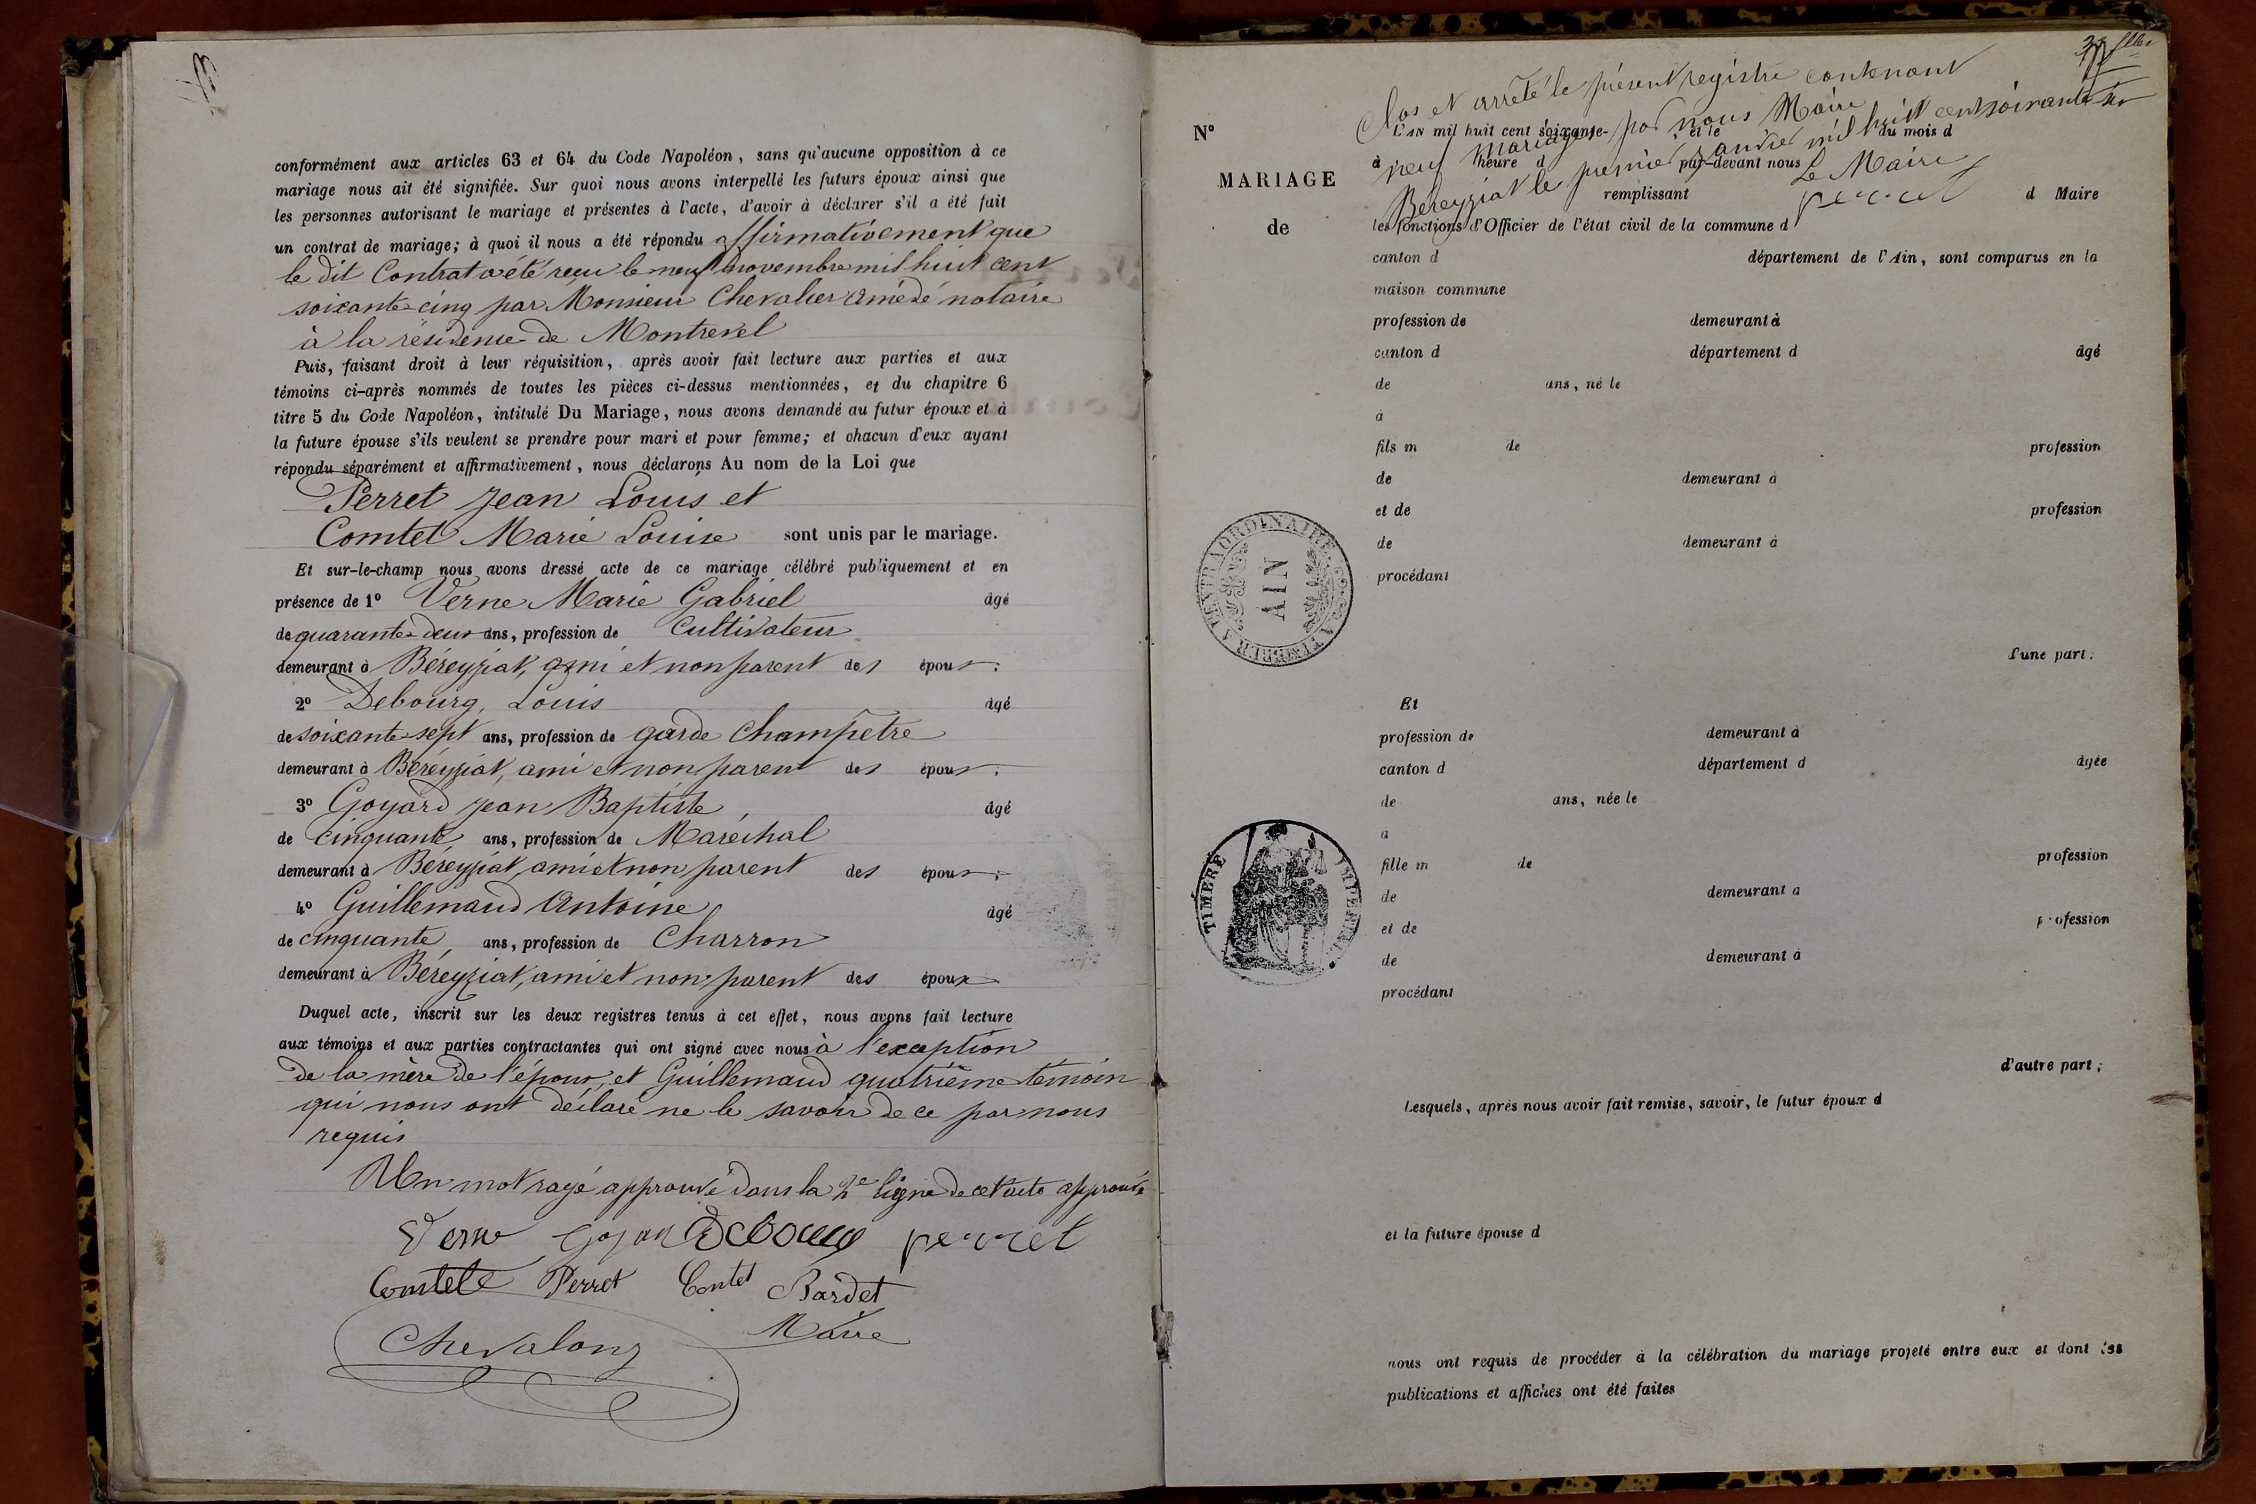 conformément aux articles 63 et 64 du Code Napoléon, sans qu'aucune opposition à ce
mariage nous ait été signifiée. Sur quoi nous avons interpellé les futurs époux ainsi que
les personnes autorisant le mariage et présentes à l'acte, d'avoir à déclarer s'il a été fait
un contrat de mariage; à quoi il nous a été répondu affirmativement que
le dit Contrat a été reçu le neuf novembre mil huit cent
soixante cinq par Monsieur Chevalier Amédé notaire
à la résidence de Montrevel
Puis, faisant droit à leur réquisition, après avoir fait lecture aux parties et aux
témoins ci-après nommés de toutes les pièces ci-dessus mentionnées, et du chapitre 6
titre 5 du Code Napoléon, intitulé Du Mariage, nous avons demandé au futur époux et à
la future épouse s'ils veulent se prendre pour mari et pour femme; et chacun d'eux ayant
répondu séparément et affirmativement, nous déclarons Au nom de la Loi que
Perret Jean Louis et
Comtet Marie Louise sont unis par le mariage.
Et sur-le-champ nous avons dressé acte de ce mariage célébré publiquement et en
présence de 1° Verne Marie Gabriel âgé
de quarante deux ans, profession de Cultivateur
demeurant à Béreyziat, ami et non parent des époux.
2° Debourg, Louis âgé
de soixante sept ans, profession de garde Champêtre
demeurant à Béreyziat, ami et non parent des époux.
3° Goyard Jean Baptiste, âgé
de cinquante ans, profession de Maréchal
demeurant à Béreyziat, ami et non parent des époux.
4° Guillemaud Antoine âgé
de cinquante ans, profession de Charron
demeurant à Béreyziat, ami et non parent des époux
Duquel acte, inscrit sur les deux registres tenus à cet effet, nous avons fait lecture
aux témoins et aux parties contractantes qui ont signé avec nous à l'exception
de la mère de l'époux, et Guillemaud quatrième témoin
qui nous ont déclaré ne le savoir de ce par nous
requis
Un mot rayé approuvé dans la 2e ligne de cet acte approuvé
Verne Goyard Debourg perret
Comtet Perret Contet Bardet
Chevalon Maire
Clos et arrêté le présent registre contenant
neuf mariages par nous Maire
Béreyziat le premier janvier mil huit cent soixante six
Le Maire
perret
N° L'AN mil huit cent soixante- , et le du mois d
à heure d par-devant nous
MARIAGE
remplissant d Maire
de
les fonctions d'Officier de l'état civil de la commune d
canton d département de l'Ain, sont comparus en la
maison commune
profession de demeurant à
canton d département d âgé
de ans, né le
à
fils m de profession
de demeurant à
et de profession
de demeurant à
procédant
TIMBRE EXTRAORDINAIRE
AIN
d'une part:
Et
profession de demeurant à
canton d département d âgée
de ans, née le
à
fille m de profession
de demeurant à
et de profession
de demeurant à
procédant
TIMBRE IMPERIAL
d'autre part;
Lesquels, après nous avoir fait remise, savoir, le futur époux d
et la future épouse d
nous ont requis de procéder à la célébration du mariage projeté entre eux et dont les
publications et affiches ont été faites